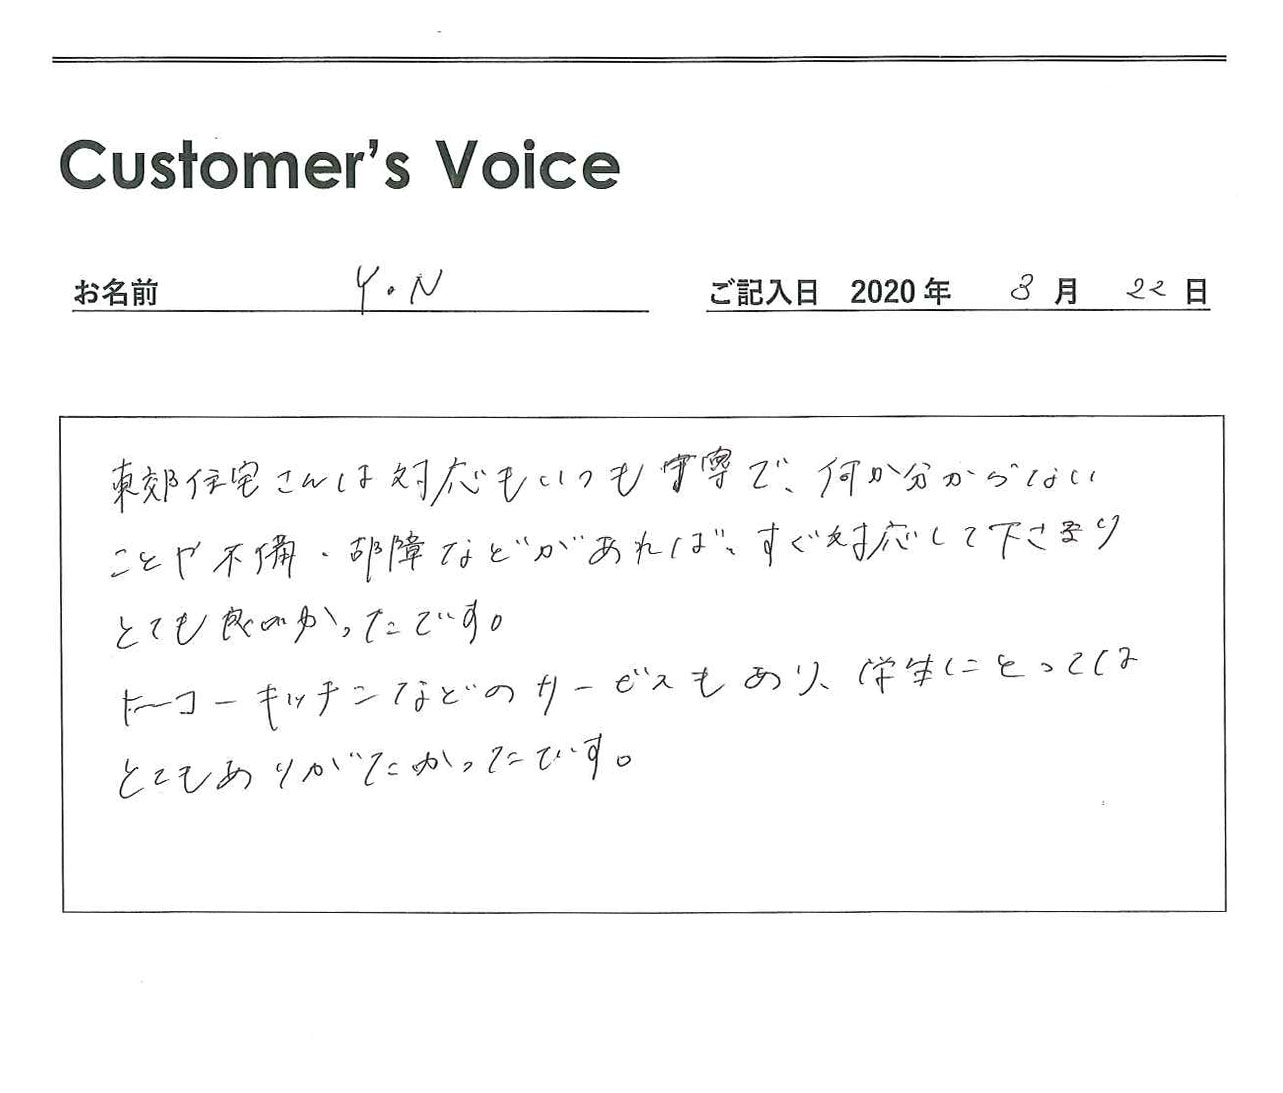 Customer's Voice
お名前 Y.N ご記入日 2020年 3月 22日
東郊住宅さんは対応もいつも丁寧で、何か分からない
ことや不備・故障などがあれば、すぐ対応して下さり
とても良かったです。
トーコーキッチンなどのサービスもあり、学生にとっては
とてもありがたかったです。